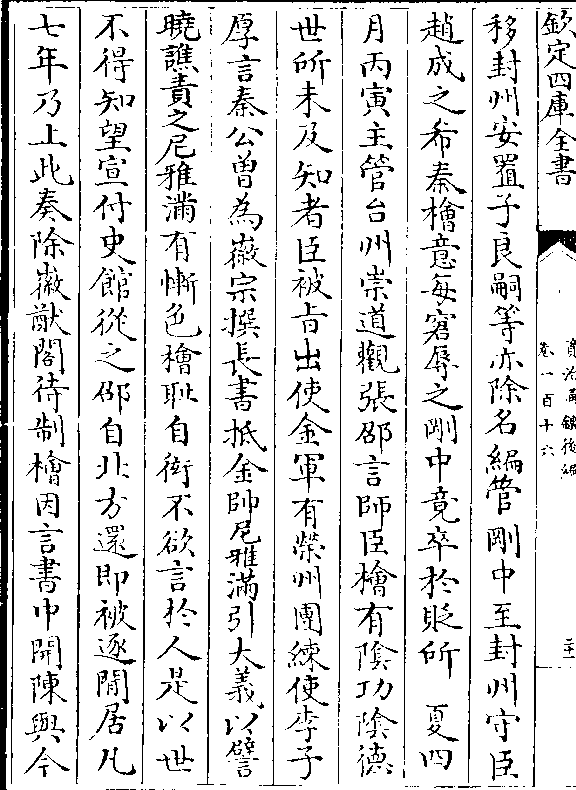 欽定四庫全書
資治通鑑後編
卷一百十六
二十
移封州安置子良嗣等亦除名編管剛中至封州守臣
趙成之希秦檜意每窘辱之剛中竟卒於貶所　夏四
月丙寅主管台州崇道觀張邵言師臣檜有陰功陰德
世所未及知者臣被旨出使金軍有榮州團練使李子
厚言秦公曾為徽宗撰長書抵金帥尼雅滿引大義以譬
曉譙責之尼雅滿有慚色檜恥自衒不欲言於人是以世
不得知望宣付史館從之邵自北方還即被逐閒居凡
七年乃上此奏除徽猷閣待制檜因言書中開陳與今